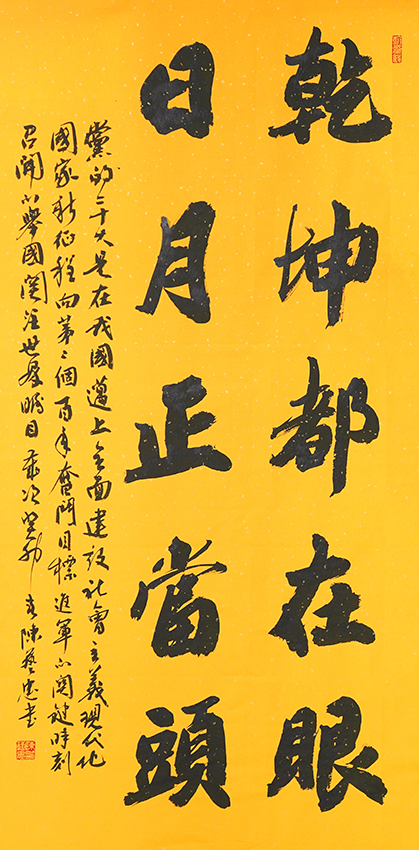 乾坤都在眼
日月正當頭
黨的二十大是在我國邁上全面建設社會主義現代化
國家新征程向第二個百年奮鬥目標進軍的關鍵時刻
召開的舉國關注世界矚目歲次壬寅年春陳藝忠書